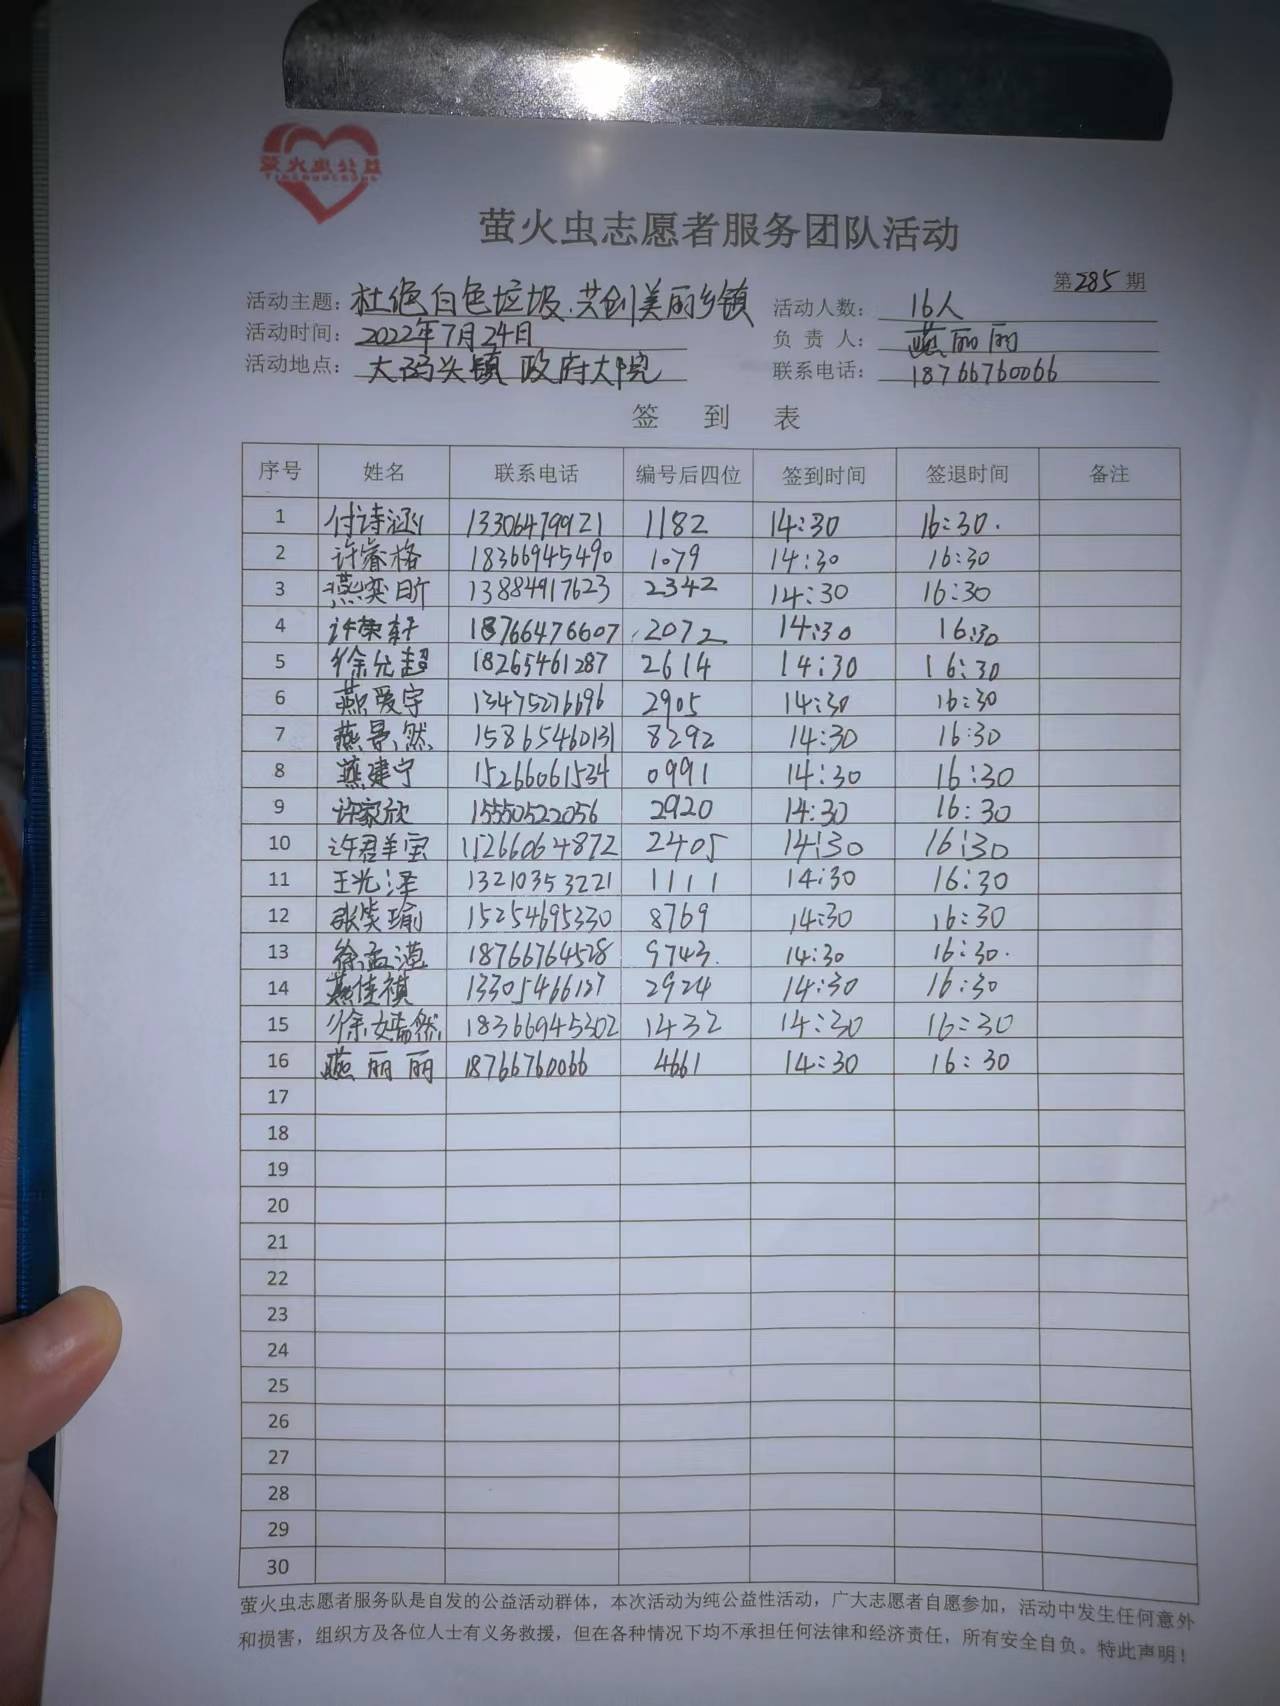 萤火虫公益
萤火虫志愿者服务团队活动
第285期
活动主题：杜绝白色垃圾.共创美丽乡镇 活动人数：16人
活动时间：2022年7月24日 负 责 人：燕丽丽
活动地点：大码头镇政府大院 联系电话：18766760066
签 到 表
序号 姓名 联系电话 编号后四位 签到时间 签退时间 备注
1 付诗涵 13306479921 1182 14:30 16:30.
2 许睿格 18366945490 1079 14:30 16:30
3 燕奕昕 13884917623 2342 14:30 16:30
4 许荣轩 18766476607 2072 14:30 16:30
5 徐允超 18265461287 2614 14:30 16:30
6 燕爱宇 13475276696 2905 14:30 16:30
7 燕景然 15865460131 8292 14:30 16:30
8 燕建宁 15266061534 0991 14:30 16:30
9 许家欣 15550522056 2920 14:30 16:30
10 许君羊宝 15266064872 2405 14:30 16:30
11 王光泽 13210353221 1111 14:30 16:30
12 张笑瑜 15254695330 8769 14:30 16:30
13 徐孟滢 18766764528 9743. 14:30 16:30.
14 燕佳祺 13305466127 2924 14:30 16:30
15 徐嫣然 18366945302 1432 14:30 16:30
16 燕丽丽 18766760066 4661 14:30 16:30
17
18
19
20
21
22
23
24
25
26
27
28
29
30
萤火虫志愿者服务队是自发的公益活动群体，本次活动为纯公益性活动，广大志愿者自愿参加，活动中发生任何意外
和损害，组织方及各位人士有义务救援，但在各种情况下均不承担任何法律和经济责任，所有安全自负。特此声明！